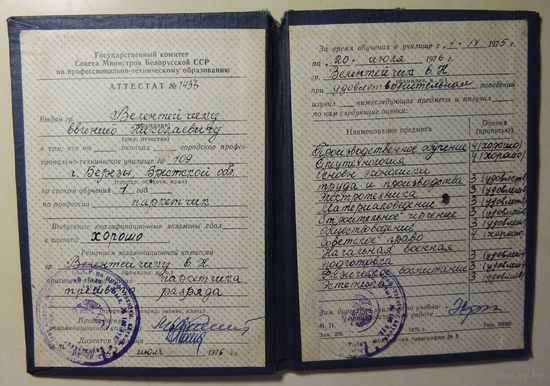 Государственный комитет
Совета Министров Белорусской ССР
по профессионально-техническому образованию
АТТЕСТАТ №
Выдан гр. Велентейчику
Евгению Николаевичу
в том, что он окончил городское профес-
сионально-техническое училище № 109
г. Березы, Брестской обл.
со сроком обучения 1 год
по профессии паркетчик
Выпускные квалификационные экзамены сдал
с оценкой хорошо
Решением экзаменационной комиссии
гр. Велентейчику Е. Н
паркетчика
разряда
экзаменационной
Директор
июля 1976 г.
За время обучения в училище с 1. IX 1975 г.
по 20 июля 1976 г.
гр. Велентейчик Е. Н
при удовлетворительном поведении
изучил нижеследующие предметы и получил
по ним следующие оценки:
Наименование предмета
Оценка
(прописью)
Производственное обучение 4 (хорошо)
Спецтехнология 4 (хорошо)
Основы экономики
труда и производства 3
Электротехника 3
Материаловедение 3
Строительное черчение 3
Обществоведение
Советское право 4 (хорошо)
Начальная военная
подготовка 3
Физическое воспитание 3
Эстетика 3
Зам. директора по учебно-
работе
М. П.
Зак. 200. 1975 г.
типография № 8